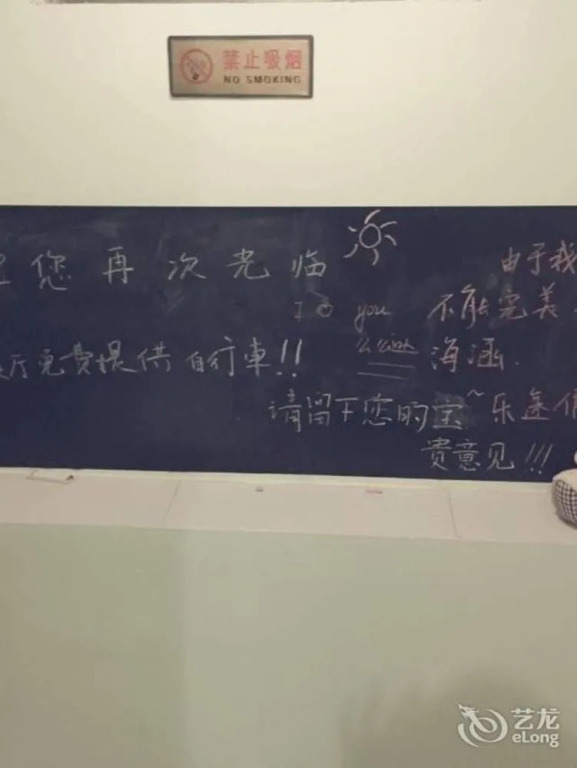 禁止吸烟
NO SMOKING
您再次光临
由于我
you
不能完美
免费提供自行車!!
海涵
请留下您的宝~
乐途
贵意见!!!
艺龙
eLong